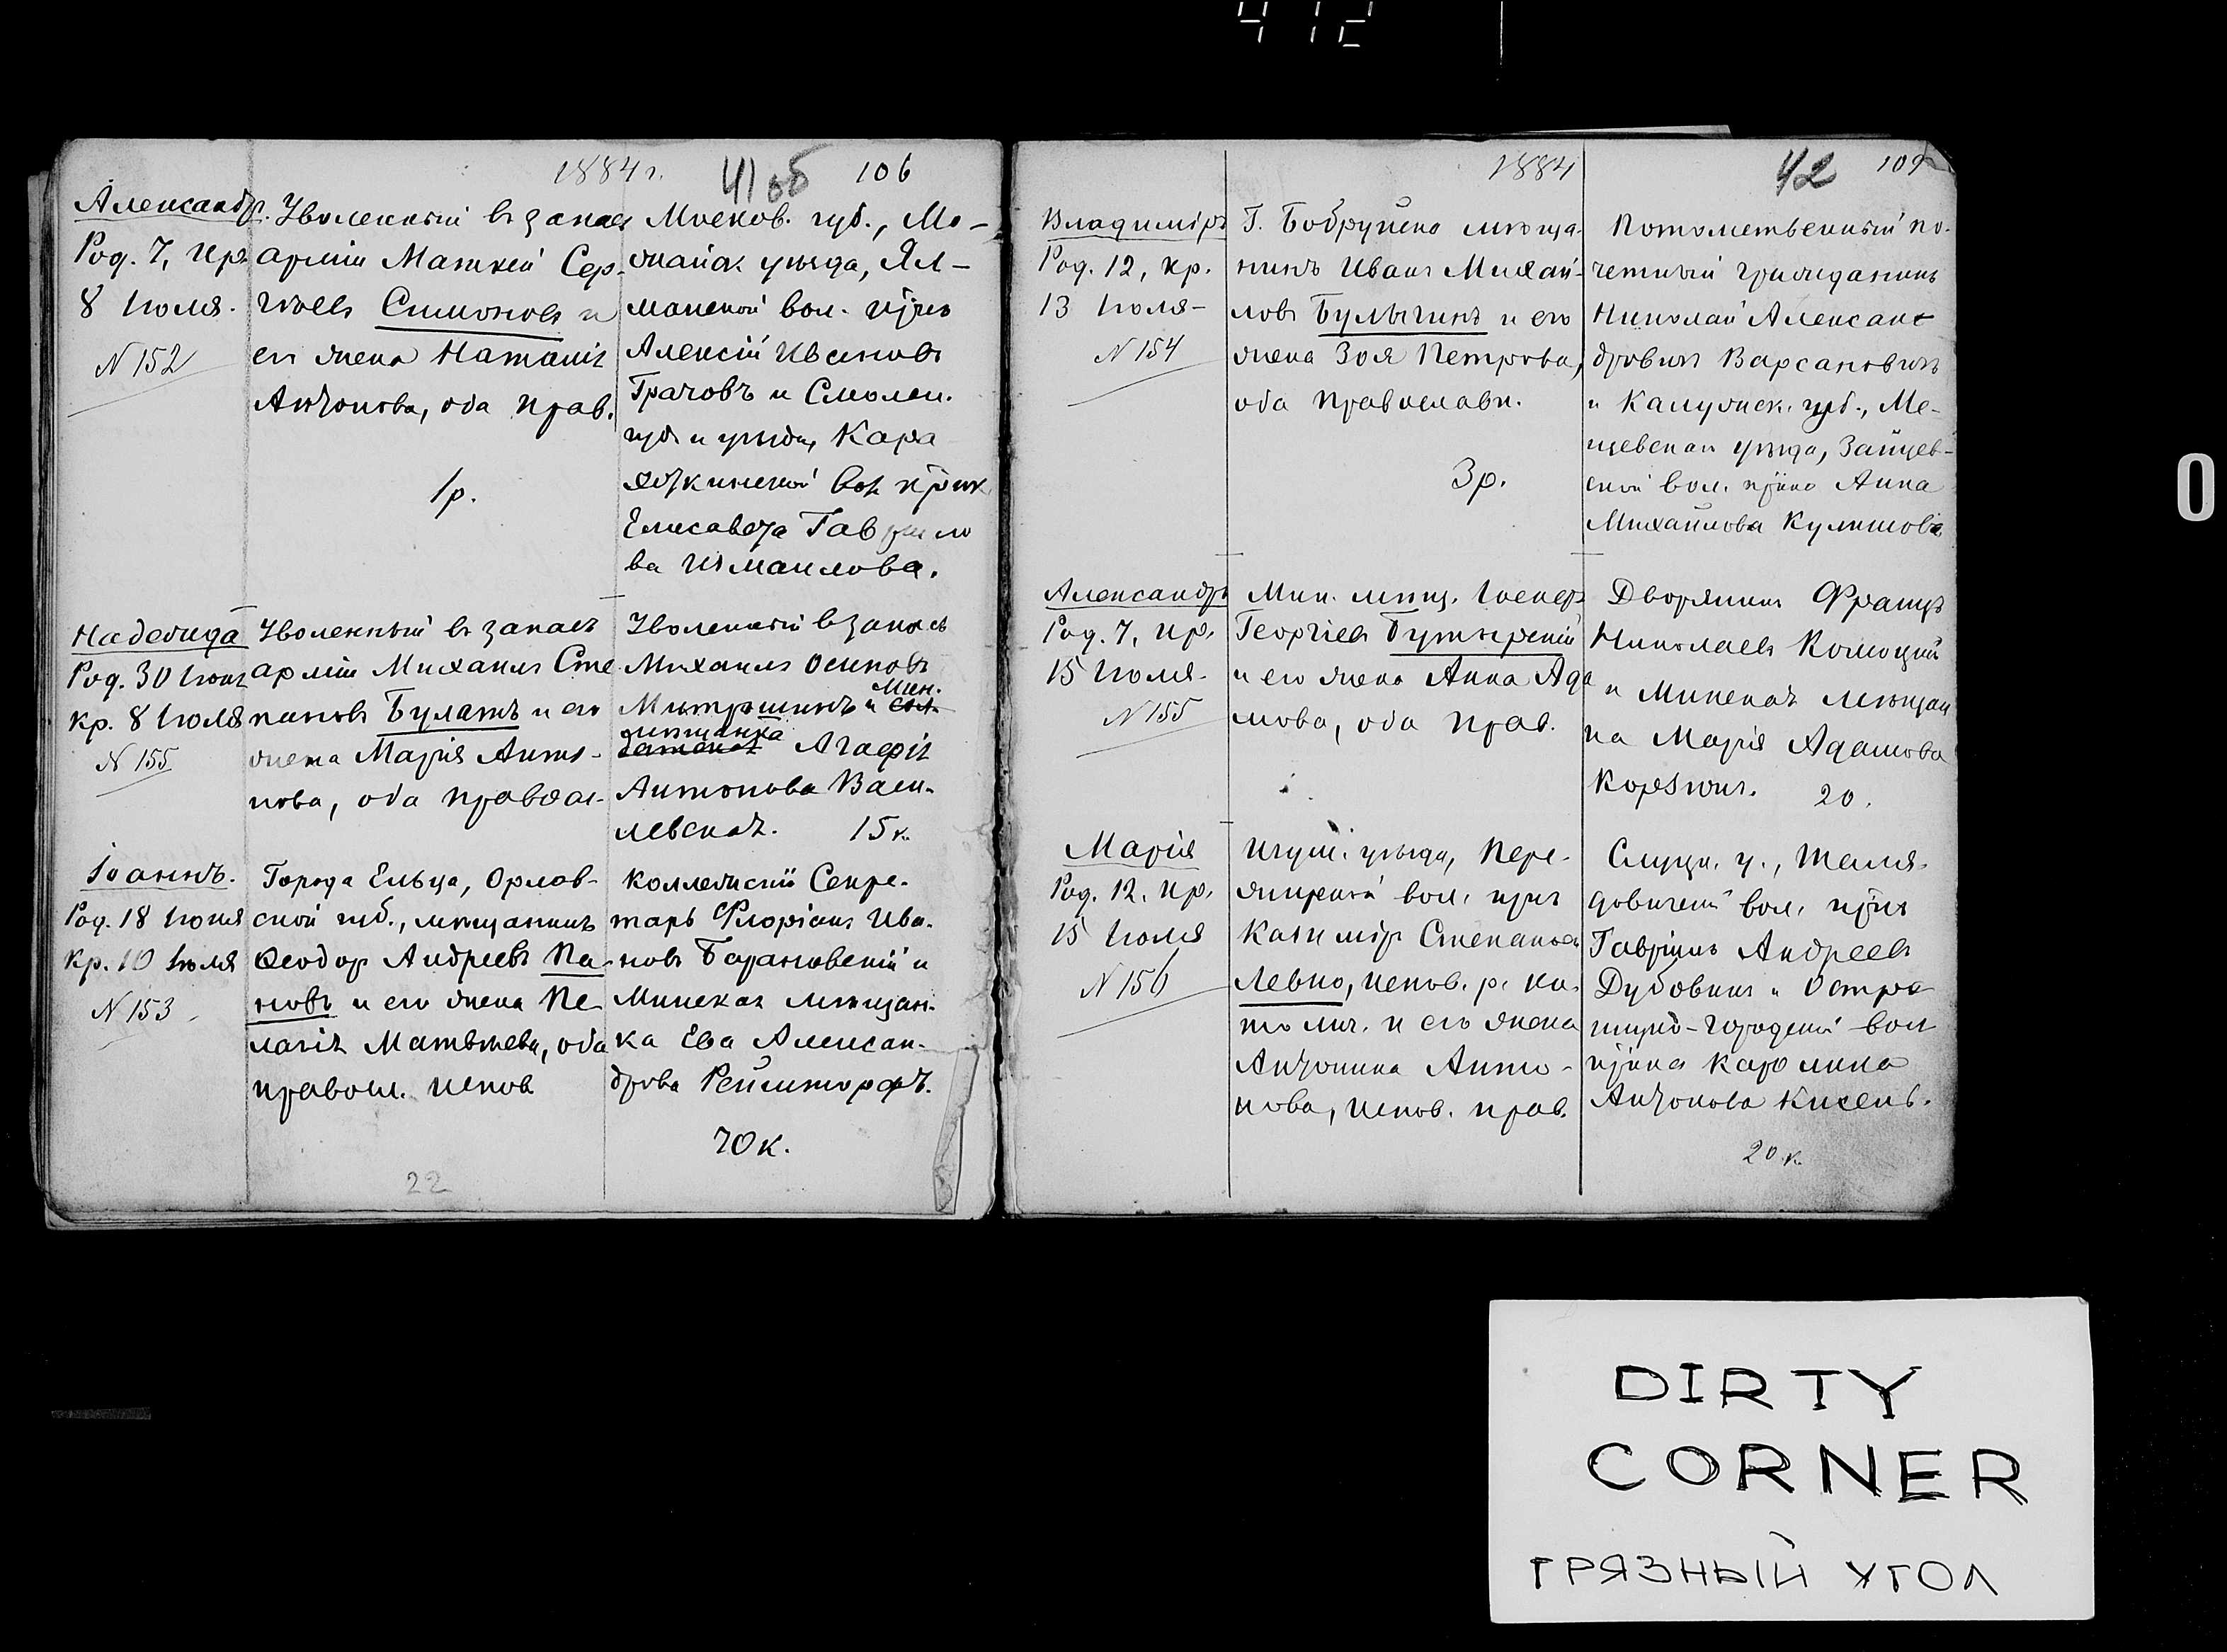 412
1884 г.
41 об
106
Александр.
Род. 7, кр.
8 Іюля.
N 152
Уволенный въ запасъ
арміи Матвей Сер-
гѣевъ Симоновъ и
его жена Наталія
Антонова, оба прав.
1 р.
Москов. губ., Мо-
жайск. уѣзда,
вол. кр̃нъ
Алексій
Грачовъ и Смолен.
губ. и уѣзда, Кара
вол. кр̃нк
Елисавета Гаврило
ва Измаилова.
Надежда
Род. 30 Іюня
кр. 8 Іюля
N 155
Уволенный въ запасъ
арміи Михаилъ Сте
пановъ Булатъ и его
жена Марія Анто-
нова, оба правосл.
Уволенный въ запасъ
Михаилъ Осиповъ
Митрошинъ и Мин.
мѣщанка
Агафія
Антонова Васи-
левская. 15 к.
Іоаннъ.
Род. 18 Іюня
кр. 10 Іюля
N 153
Города Ельца, Орлов-
ской губ., мѣщанинъ
Ѳеодор Андреевъ Па-
новъ и его жена Пе
лагія Матвѣева, оба
правосл. испов
Коллежскій Секре-
тарь Флоріанъ Ива-
новъ Барановскій и
Минская мѣщан-
ка Ева Алексан-
дрова Рейнсторфъ.
70 к.
22
1884
42
107
Владиміръ
Род. 12, кр.
13 Іюля-
N 154
Г. Бобруйска мѣща-
нинъ Иванъ Михай-
ловъ Булыгинъ и его
жена Зоя Петрова,
оба православн.
3 р.
Потомственный по-
четный гражданинъ
Николай Алексан-
дровичъ Варсановичъ
и Калужск. губ., Ме-
щевскаго уѣзда, Зайцев-
ской вол. кр̃нка Анна
Михайлова Кулишова
Александръ
Род. 7, кр.
15 Іюля-
N 155
Мин. мѣщ.
Георгіевъ Бутырскій
и его жена Анна Ада
мова, оба прав.
Дворянинъ Францъ
Николаевъ
и Минская мѣщан
ка Марія Адамова
20.
Марія
Род. 12, кр.
15 Іюля
N 156
Игум. уѣзда, Пере-
жирской вол. кр̃нъ
Казиміръ Степановъ
Левко, испов. р. ка-
толич. и его жена
Антонина Анто-
нова, испов. прав.
Слуцк. у.,
вол. кр̃нъ
Гавріилъ Андреевъ
Дубовикъ и Остро
шицко-городской вол
кр̃нка Каролина
Антонова Кисель.
20 к.
0
DIRTY
CORNER
ГРЯЗНЫЙ УГОЛ